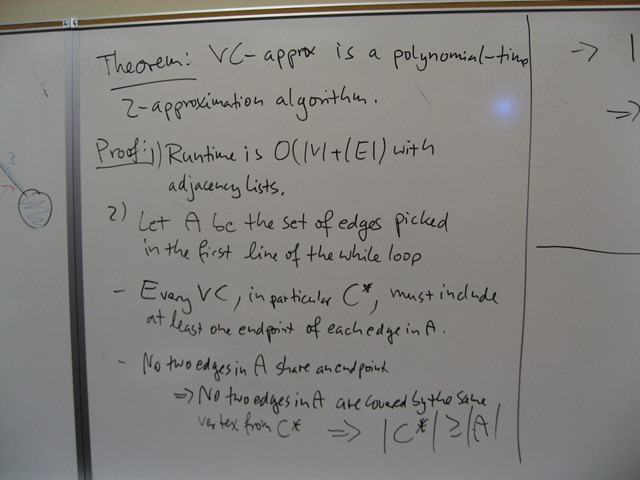 Theorem: VC-approx is a polynomial-time
2-approximation algorithm.
Proof: 1) Runtime is O(|V|+|E|) with
adjacency lists.
2) Let A be the set of edges picked
in the first line of the while loop
- Every VC, in particular C*, must include
at least one endpoint of each edge in A.
- No two edges in A share an endpoint
=> No two edges in A are covered by the same
vertex from C* => |C*| ≥ |A|
→ 1
=>
3